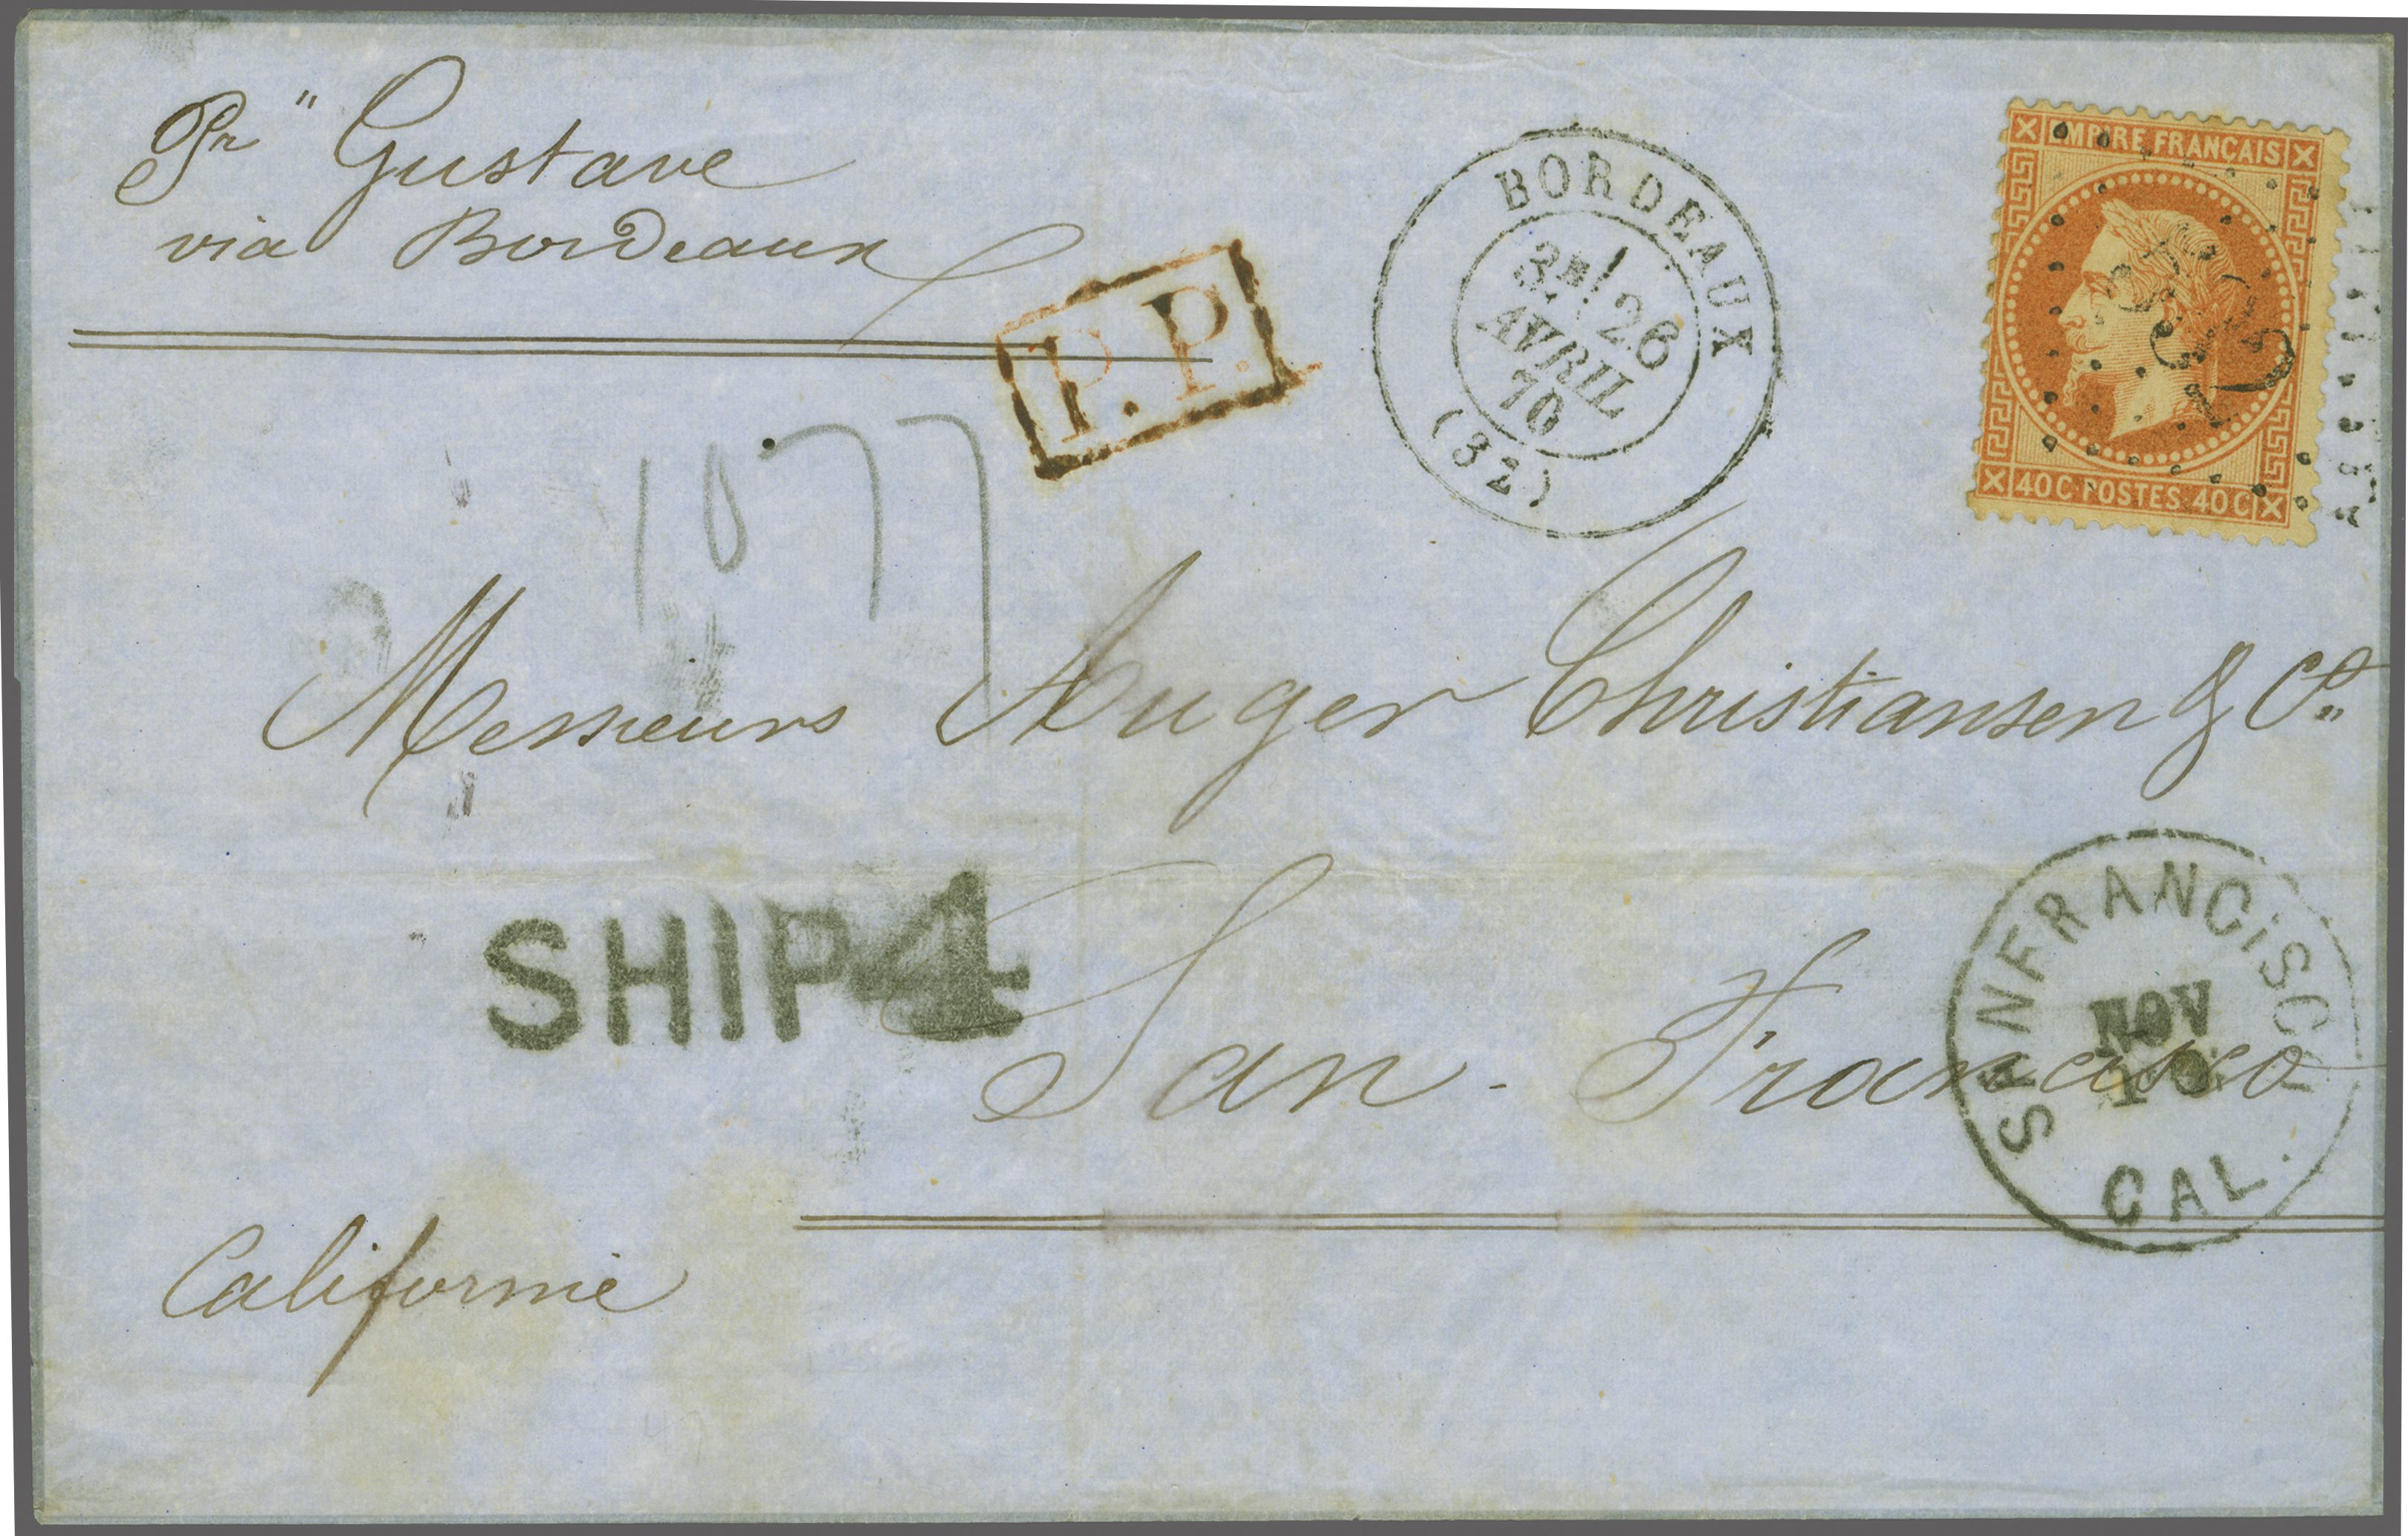 Pr " Gustave
via Bordeaux
P.P.
BORDEAUX
3E/
26
AVRIL
70
(32)
EMPIRE FRANÇAIS
40C POSTES 40C
1077
Messieurs Auger Christiansen & Co
SHIP 4
San-Francisco
SAN FRANCISCO
NOV
10
CAL.
Californie